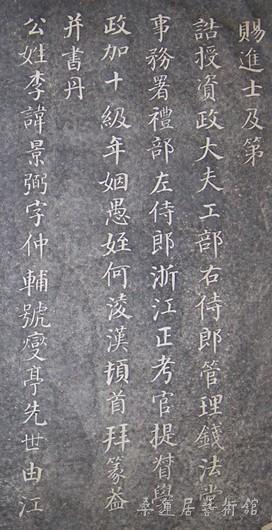 賜進士及第
誥授資政大夫工部右侍郎管理錢法堂
事務署禮部左侍郎浙江正考官提督學
政加十級年姻愚姪何淩漢頓首拜篆葢
并書丹
公姓李諱景弼字仲輔號燮亭先世由江
桑蓮居藝術館